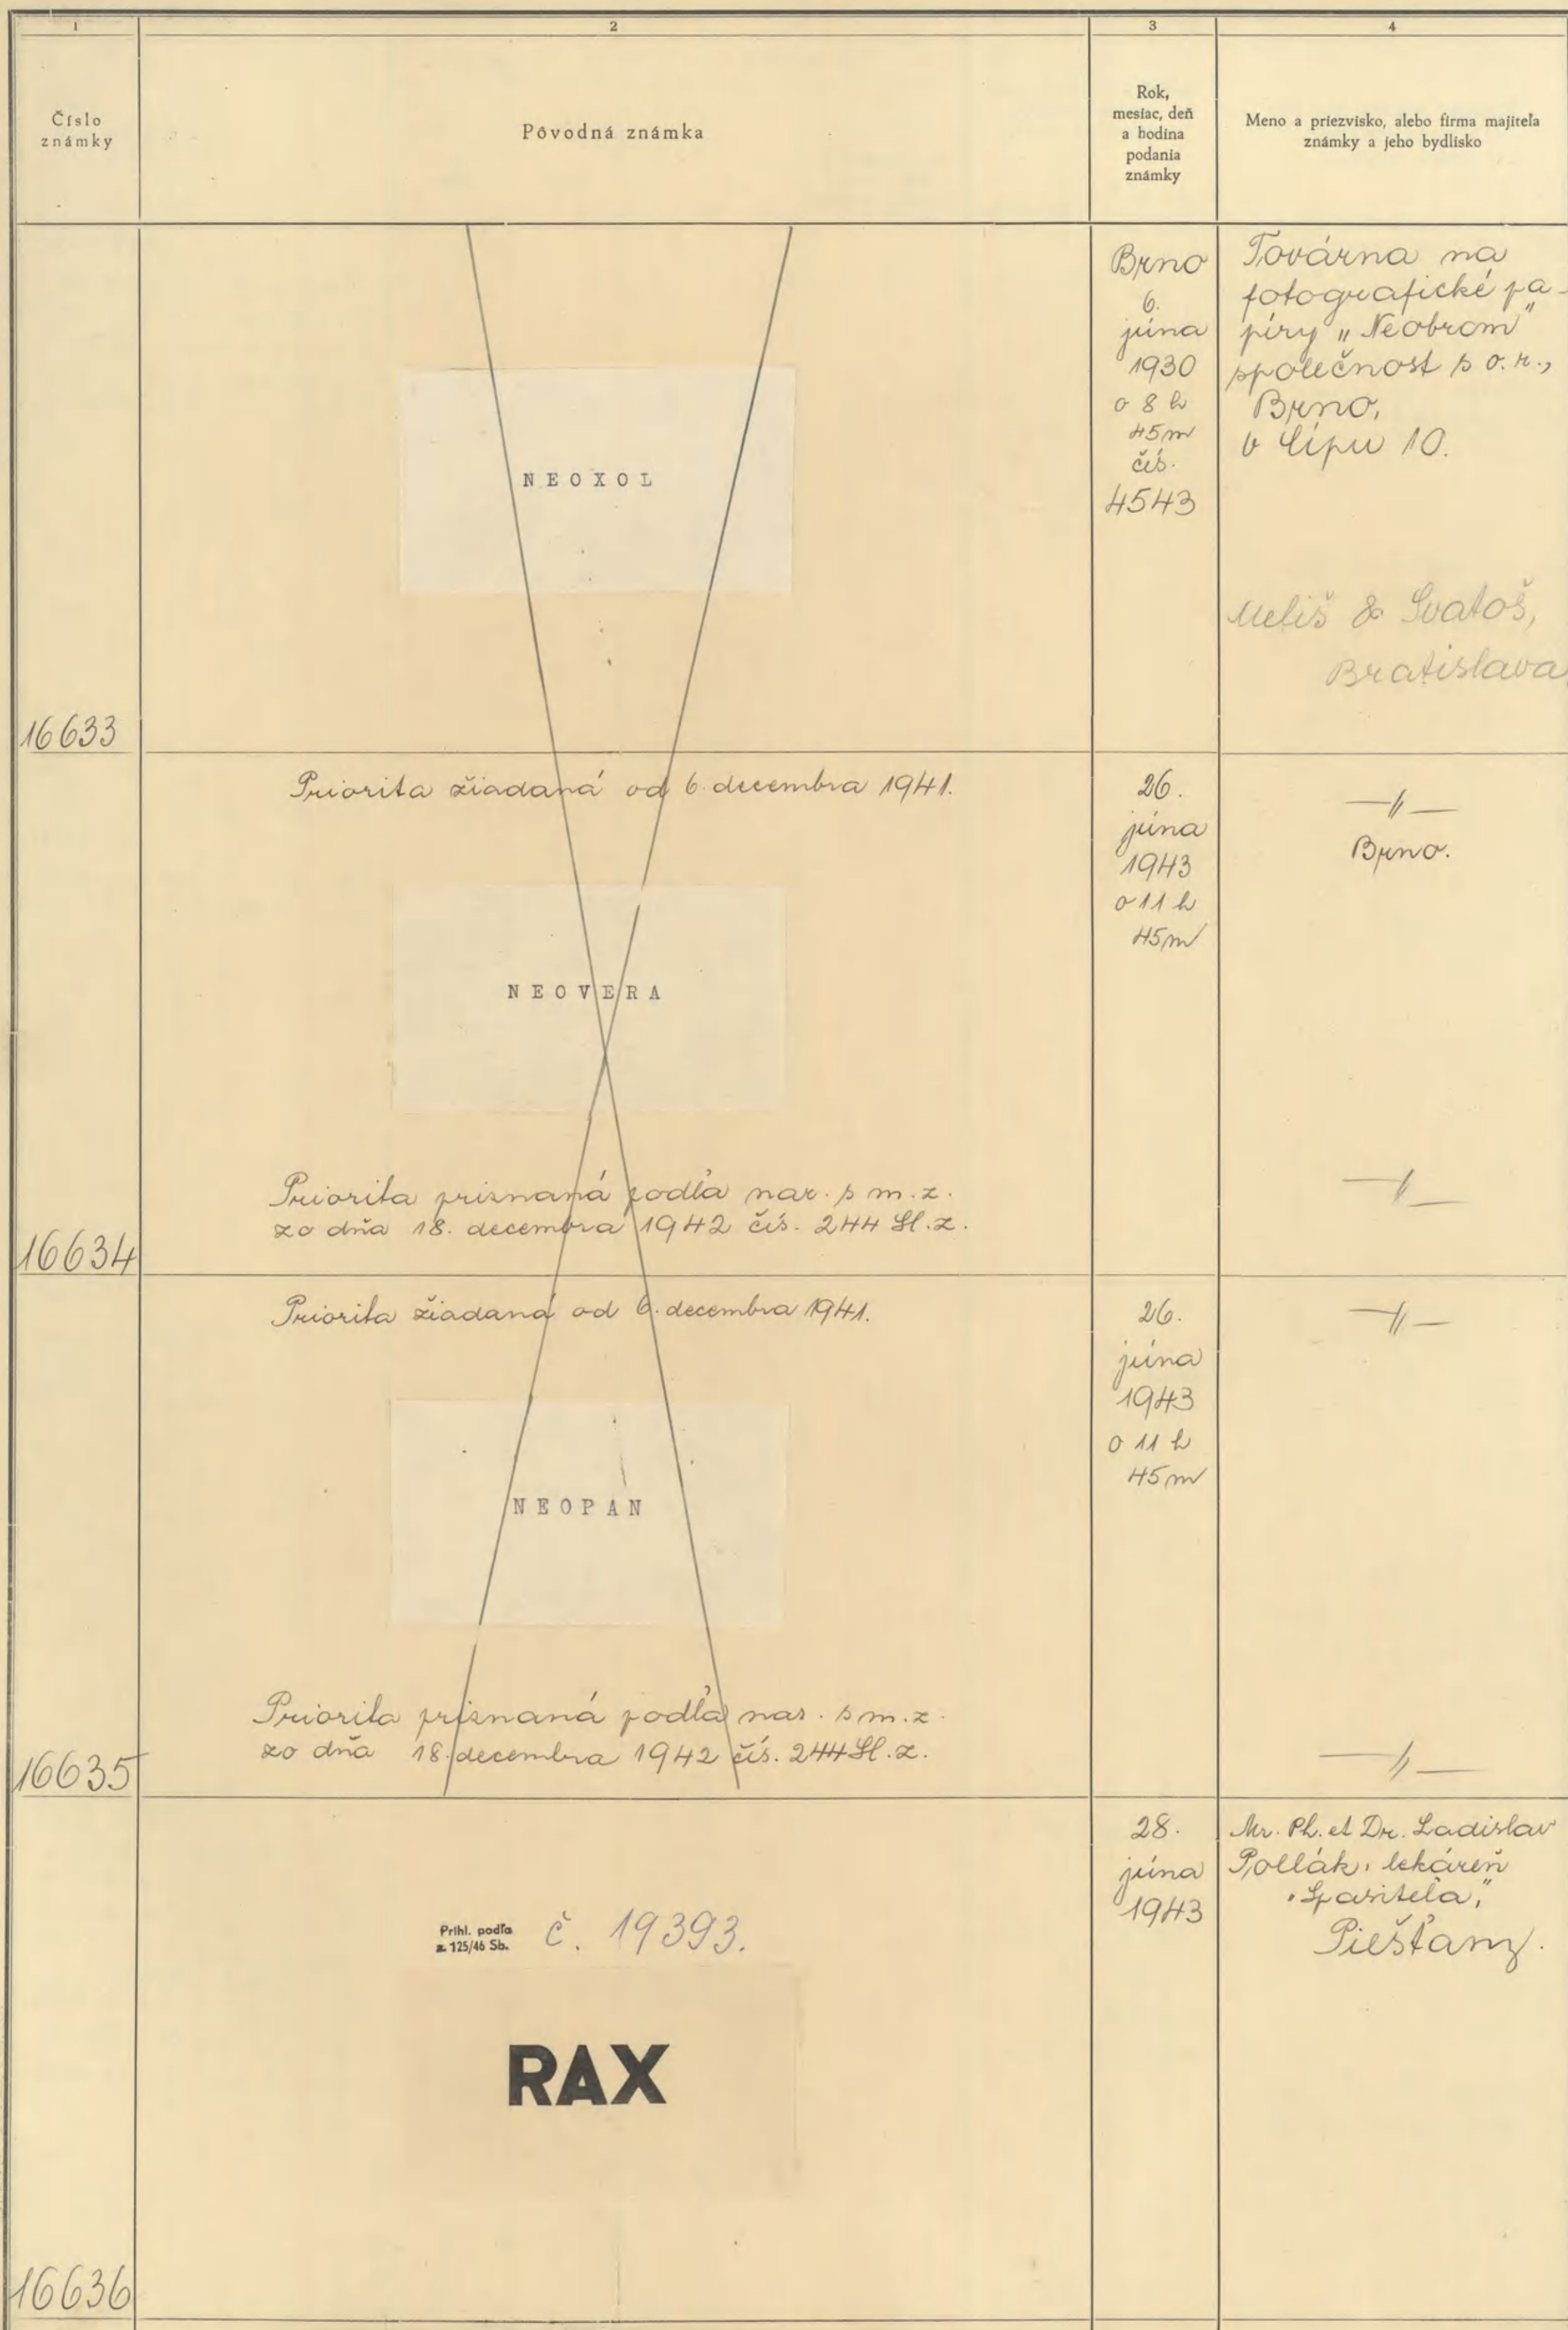 1
2
3
4
Číslo
známky
Pôvodná známka
Rok,
mesiac, deň
a hodina
podania
známky
Meno a priezvisko, alebo firma majiteľa
známky a jeho bydlisko
16633
NEOXOL
Brno
6.
júna
1930
o 8 h
45m
čís.
4543
Továrna na
fotografické pa-
píry „Neobrom"
společnost s o.r.,
Brno,
v Lípu 10.
& Svatoš,
Bratislava
16634
Priorita žiadaná od 6. decembra 1941.
NEOVERA
Priorita priznaná podľa nar. s m. z.
zo dňa 18. decembra 1942 čís. 244 Sl. z.
26.
júna
1943
o 11 h
45m
—〃—
Brno.
—〃—
16635
Priorita žiadaná od 6. decembra 1941.
NEOPAN
Priorita priznaná podľa nar. s m. z.
zo dňa 18. decembra 1942 čís. 244 Sl. z.
26.
júna
1943
o 11 h
45m
—〃—
—〃—
16636
Prihl. podľa
z. 125/46 Sb.
č. 19393.
RAX
28.
júna
1943
Mr. Ph. et Dr. Ladislav
Pollák, lekáreň
„Spasiteľa",
Piešťany.